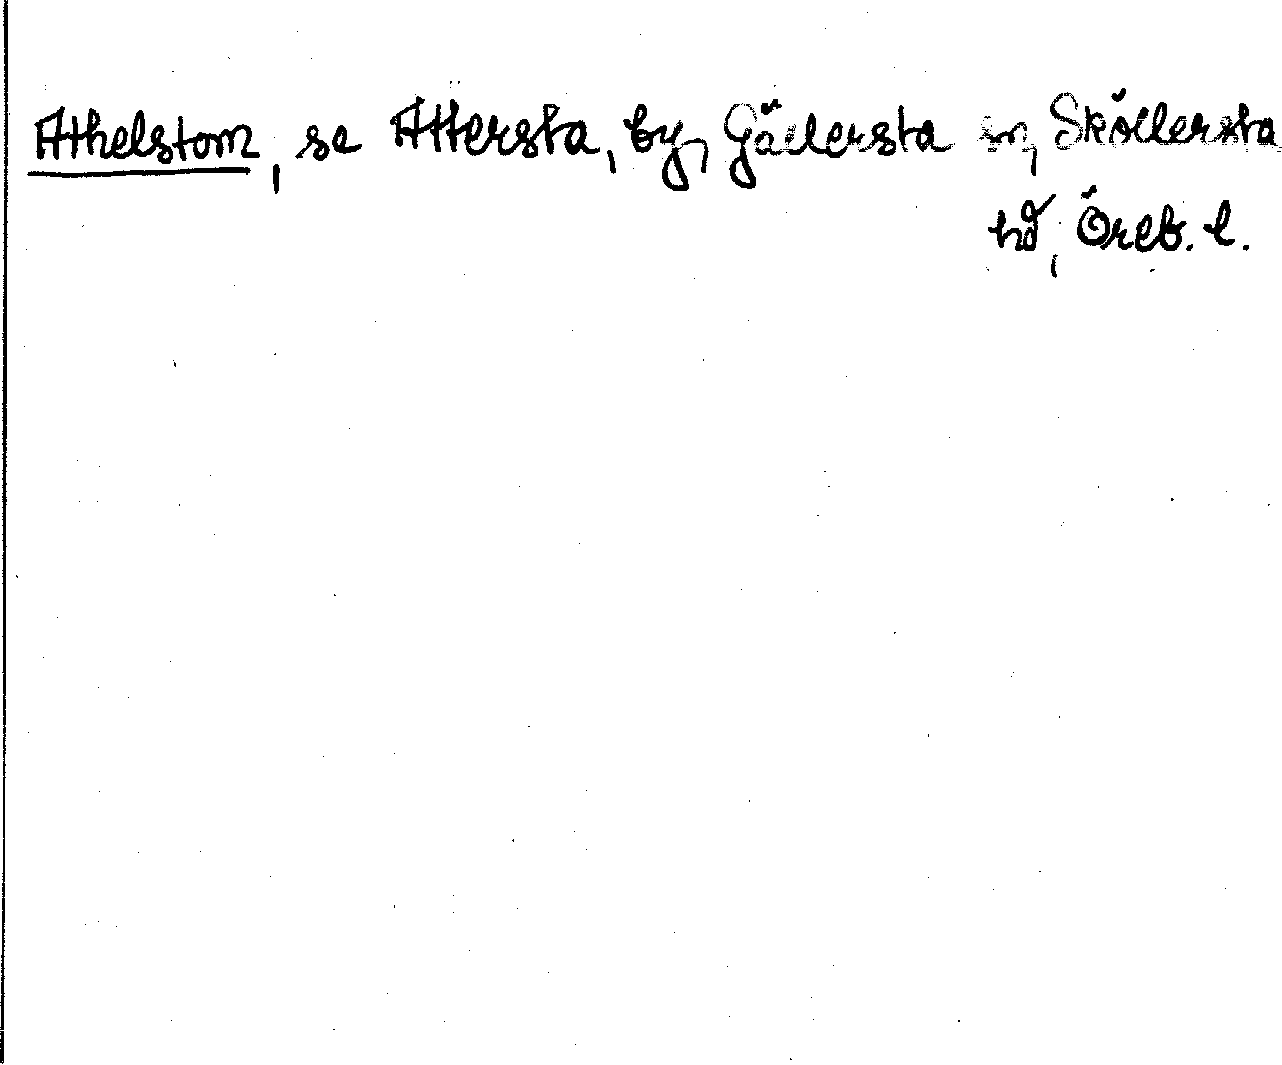 Athelstom, se Attersta, by, Gällersta sn, Sköllersta
hd, Öreb. l.